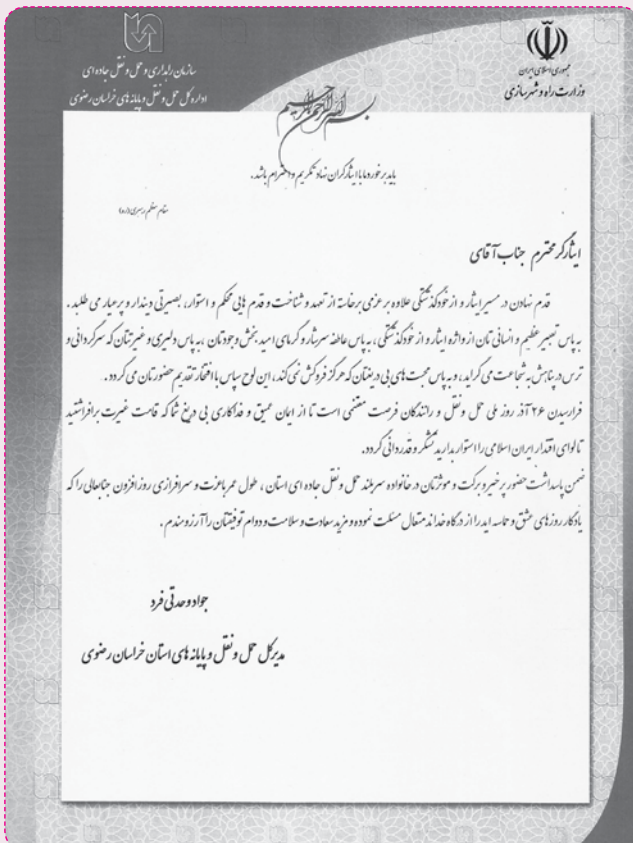 جمهوری اسلامی ایران
وزارت راه و شهرسازی
سازمان راهداری و حمل و نقل جاده ای
اداره کل حمل و نقل و پایانه های خراسان رضوی
بسم الله الرحمن الرحیم
باید برخورد ما با ایثارگران نهاد تکریم و احترام باشد.
مقام معظم رهبری (ره)
ایثارگر محترم جناب آقای
قدم نهادن در مسیر ایثار و از خودگذشتگی علاوه بر عزمی برخاسته از تعهد و شناخت و قدم هایی محکم و استوار، بصیرتی دیندار و پرعیار می طلبد.
به پاس تعبیر عظیم و انسانی تان از واژه ایثار و از خودگذشتگی، به پاس عاطفه سرشار و گرمای امید بخش وجودتان، به پاس دلیری و غیرتتان که سرگردانی و
ترس در پناهش به شجاعت می گراید، و به پاس محبت های بی دریغتان که هرگز فروکش نمی کند، این لوح سپاس با افتخار تقدیم حضورتان می گردد.
فرارسیدن ۲۶ آذر روز ملی حمل و نقل و رانندگان فرصت مغتنمی است تا از ایمان عمیق و فداکاری بی دریغ شما که قامت غیرت برافراشتید
تا لوای اقتدار ایران اسلامی را استوار بدارید تشکر و قدردانی گردد.
ضمن پاسداشت حضور پر خیر و برکت و موثرتان در خانواده سربلند حمل و نقل جاده ای استان، طول عمر با عزت و سرافرازی روزافزون جنابعالی را که
یادگار روزهای عشق و حماسه اید را از درگاه خداوند متعال مسئلت نموده و مزید سعادت و سلامت و دوام توفیقتان را آرزومندم.
جواد وحدتی فرد
مدیرکل حمل و نقل و پایانه های استان خراسان رضوی